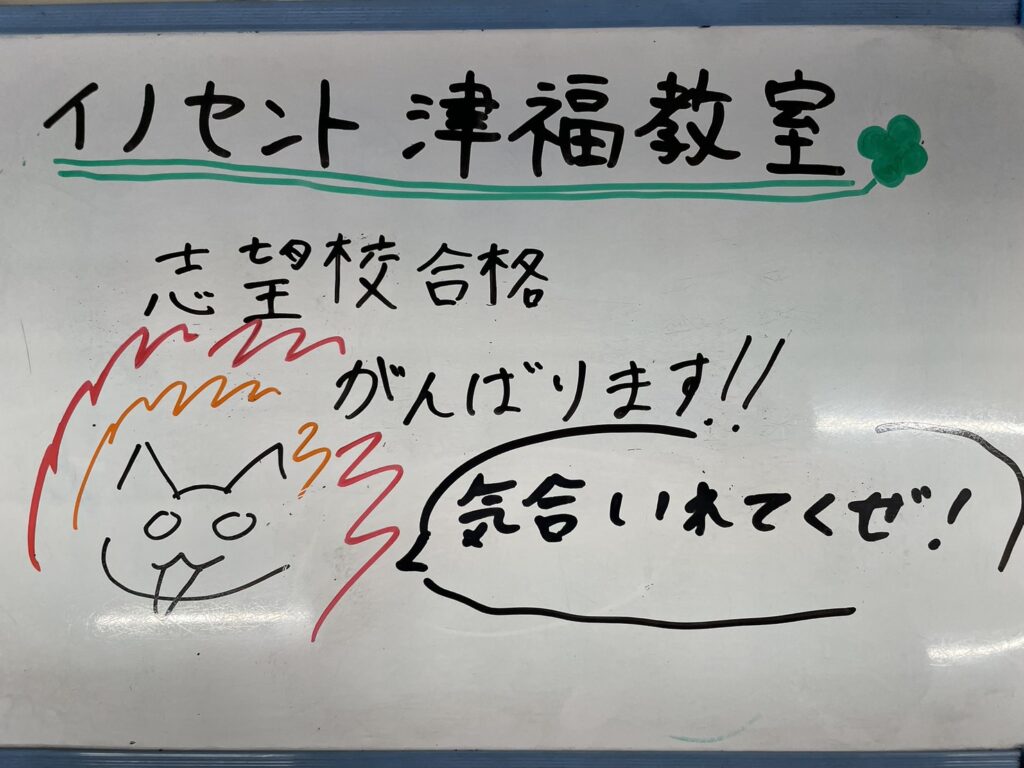 イノセント 津福教室
志望校合格
がんばります!!
気合いれてくぜ!